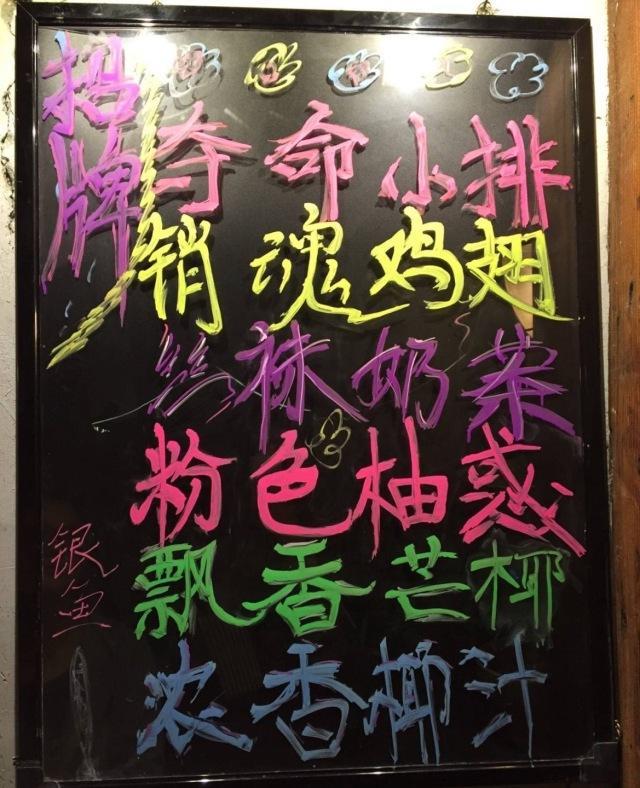 招牌
夺命小排
销魂鸡翅
丝袜奶茶
粉色柚惑
飘香芒椰
浓香椰汁
银鱼